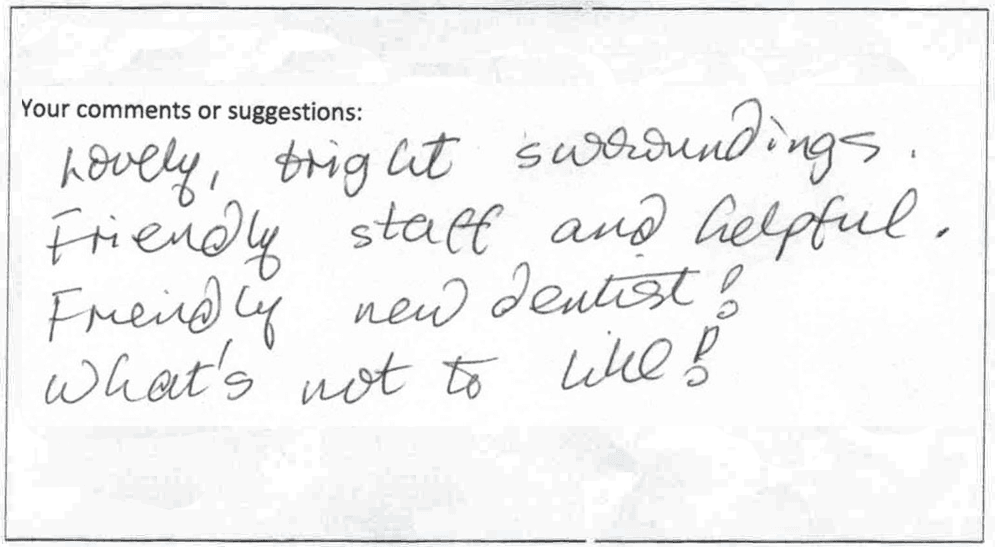 Your comments or suggestions:
Lovely, bright surroundings.
Friendly staff and helpful.
Friendly new dentist!
What's not to like!